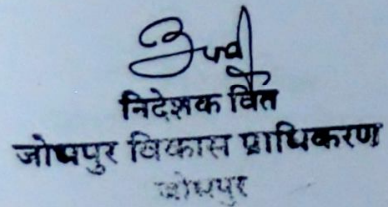 निदेशक वित्त
जोधपुर विकास प्राधिकरण
जोधपुर